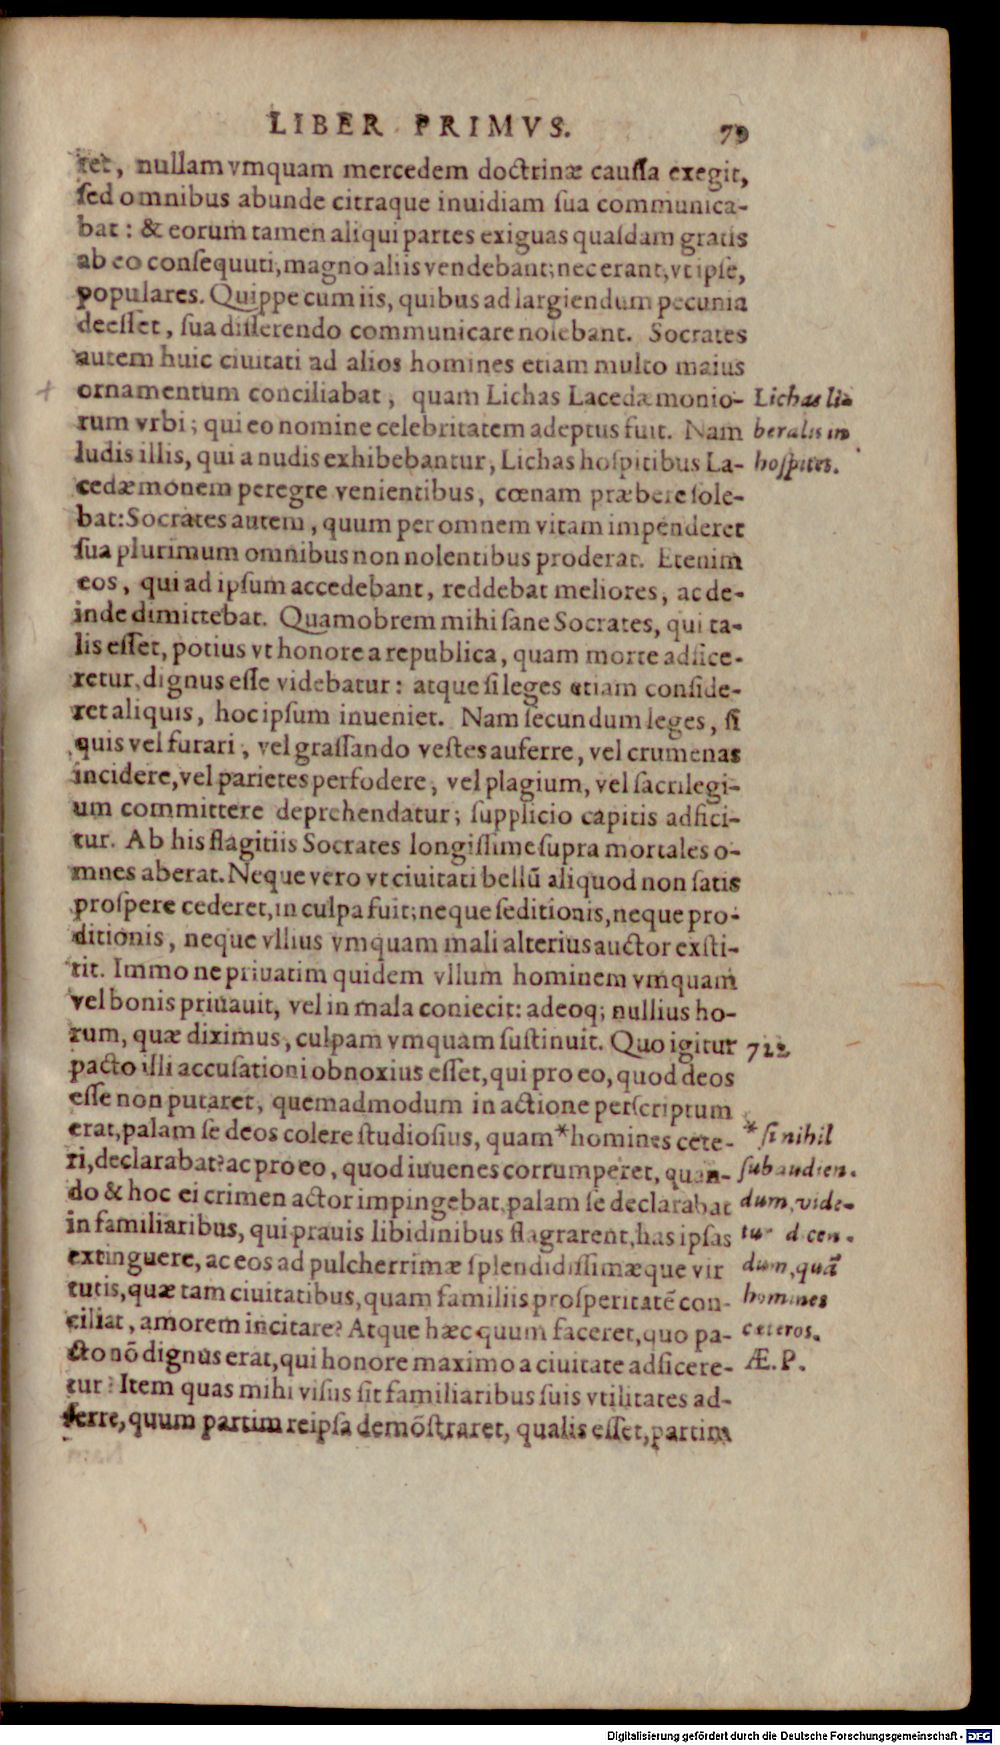 LIBER PRIMVS. 79
ret, nullam vmquam mercedem doctrinæ cauſſa exegit,
ſed omnibus abunde citraque inuidiam ſua communica-
bat : & eorum tamen aliqui partes exiguas quaſdam gratis
ab eo conſequuti, magno aliis vendebant; nec erant, vt ipſe,
populares. Quippe cum iis, quibus ad largiendum pecunia
deeſſet, ſua diſſerendo communicare nolebant. Socrates
autem huic ciuitati ad alios homines etiam multo maius
ornamentum conciliabat, quam Lichas Lacedæmonio- Lichas li-
rum vrbi; qui eo nomine celebritatem adeptus fuit. Nam beralis in
ludis illis, qui a nudis exhibebantur, Lichas hoſpitibus La- hoſpites.
cedæmonem peregre venientibus, cœnam præbere ſole-
bat: Socrates autem, quum per omnem vitam impenderet
ſua plurimum omnibus non nolentibus proderat. Etenim
eos, qui ad ipſum accedebant, reddebat meliores, ac de-
inde dimittebat. Quamobrem mihi ſane Socrates, qui ta-
lis eſſet, potius vt honore a republica, quam morte adfice-
retur, dignus eſſe videbatur: atque ſi leges etiam conſide-
ret aliquis, hoc ipſum inueniet. Nam ſecundum leges, ſi
quis vel furari, vel graſſando veſtes auferre, vel crumenas
incidere, vel parietes perfodere, vel plagium, vel ſacrilegi-
um committere deprehendatur; ſupplicio capitis adfici-
tur. Ab his flagitiis Socrates longiſſime ſupra mortales o-
mnes aberat. Neque vero vt ciuitati bellũ aliquod non ſatis
proſpere cederet, in culpa fuit; neque ſeditionis, neque pro-
ditionis, neque vllius vmquam mali alterius auctor exſti-
tit. Immo ne priuatim quidem vllum hominem vmquam
vel bonis priuauit, vel in mala coniecit: adeoq; nullius ho-
rum, quæ diximus, culpam vmquam ſuſtinuit. Quo igitur 722.
pacto illi accuſationi obnoxius eſſet, qui pro eo, quod deos
eſſe non putaret, quemadmodum in actione perſcriptum
erat, palam ſe deos colere ſtudioſius, quam *homines cete- * ſi nihil
ri, declarabat? ac pro eo, quod iuuenes corrumperet, quan- ſubaudien-
do & hoc ei crimen actor impingebat, palam ſe declarabat dum, vide-
in familiaribus, qui prauis libidinibus flagrarent, has ipſas tur dicen-
extinguere, ac eos ad pulcherrimæ ſplendidiſſimæque vir dum, quã
tutis, quæ tam ciuitatibus, quam familiis proſperitatẽ con- homines
ciliat, amorem incitare? Atque hæc quum faceret, quo pa- ceteros.
cto nõ dignus erat, qui honore maximo a ciuitate adficere- Æ. P.
tur? Item quas mihi viſus ſit familiaribus ſuis vtilitates ad-
ferre, quum partim reipſa demõſtraret, qualis eſſet, partim
Digitalisierung gefördert durch die Deutsche Forschungsgemeinschaft - DFG